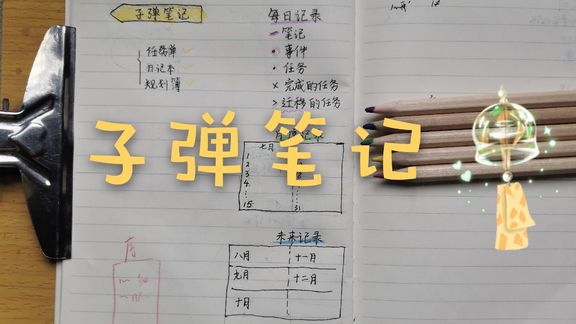 子弹笔记
任务单
日记本
规划簿
每日记录
笔记
事件
任务
× 完成的任务
> 迁移的任务
子弹笔记
七月
1
2
3
4
15
31
未来记录
八月 十一月
九月 十二月
十月